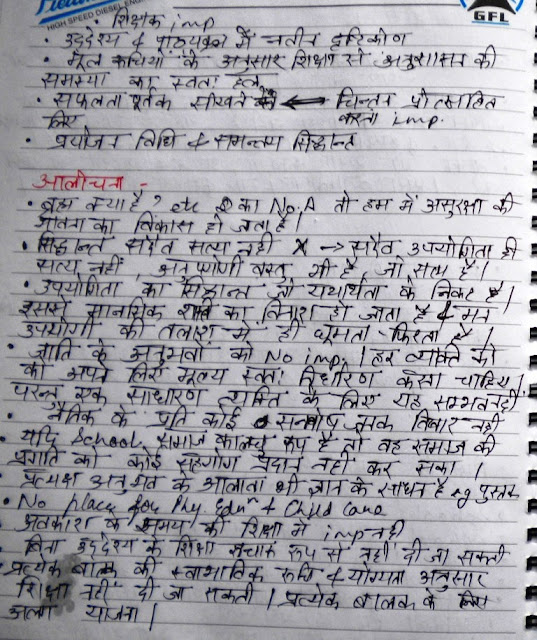 HIGH SPEED DIESEL ENGI
GFL
शिक्षक imp
• उददेश्य & पाठयक्रम में नवीन दृष्टिकोण
• मूल रूचियों के अनुसार शिक्षण से अनुशासन की
समस्या का स्वतः हल
• सफलता पूर्वक सीखने के ← चिन्तन प्रोत्साहित
लिए करना imp.
• प्रयोजन विधि & समन्वय सिद्धान्त
आलोचना -
• ब्रह्म क्या है? etc का No. A तो हम में असुरक्षा की
भावना का विकास हो जाता है।
• सिद्धान्त सदैव सत्य नही X → सदैव उपयोगिता ही
सत्य नही, अनुपयोगी वस्तु भी है, जो सत्य है।
• उपयोगिता का सिद्धान्त जो यथार्थता के निकट है।
इससे मानसिक शान्ति का विनाश हो जाता है & मन
उपयोगी की तलाश में ही घूमता-फिरता है।
• जाति के अनुभवों को No imp. । हर व्यक्ति को
को अपने लिए मूल्य स्वतः निर्धारण करना चाहिए।
परन्तु एक साधारण व्यक्ति के लिए यह सम्भव नही
• नैतिक के प्रति कोई सन्तोष जनक विचार नही
• यदि School, समाज का लघु रूप है तो वह समाज की
प्रगति को कोई सहयोग प्रदान नही कर सका।
• प्रत्यक्ष अनुभव के अलावा भी ज्ञान के साधन है eg पुस्तक
• No place for Phy Eduⁿ & Child Care
• अवकाश के समय की शिक्षा में imp नही
• बिना उददेश्य के शिक्षा सुचारू रूप से नही दी जा सकती
• प्रत्येक बालक की स्वाभाविक रूचि & योग्यता अनुसार
शिक्षा नही दी जा सकती। प्रत्येक बालक के लिए
अलग योजना।